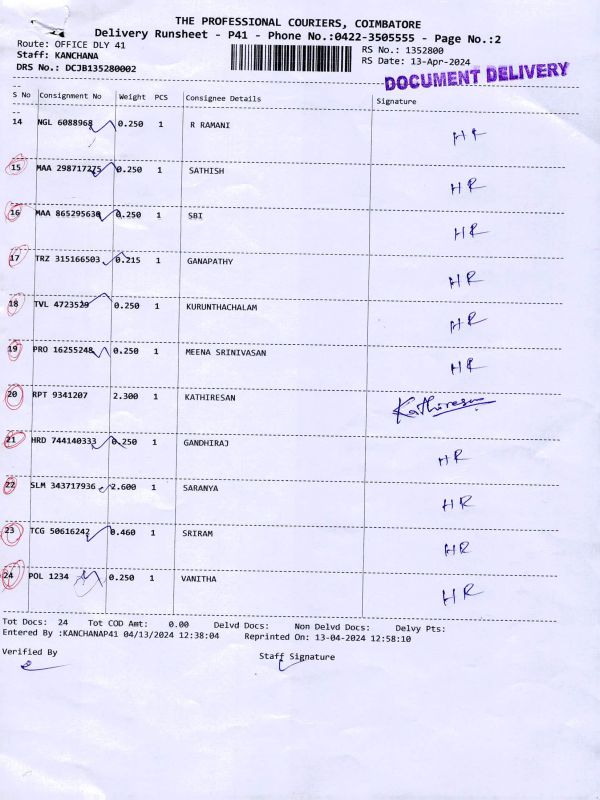 THE PROFESSIONAL COURIERS, COIMBATORE
Delivery Runsheet - P41 - Phone No.:0422-3505555 - Page No.:2
Route: OFFICE DLY 41
Staff: KANCHANA
DRS No.: DCJB135280002
RS No.: 1352800
RS Date: 13-Apr-2024
DOCUMENT DELIVERY
S No Consignment No Weight PCS Consignee Details Signature
14 NGL 6088968 0.250 1 R RAMANI HR
15 MAA 298717275 0.250 1 SATHISH HR
16 MAA 865295630 0.250 1 SBI HR
17 TRZ 315166503 0.215 1 GANAPATHY HR
18 TVL 4723529 0.250 1 KURUNTHACHALAM HR
19 PRO 16255248 0.250 1 MEENA SRINIVASAN HR
20 RPT 9341207 2.300 1 KATHIRESAN Kathiresan
21 HRD 744140333 0.250 1 GANDHIRAJ HR
22 SLM 343717936 2.600 1 SARANYA HR
23 TCG 50616242 0.460 1 SRIRAM HR
24 POL 1234 0.250 1 VANITHA HR
Tot Docs: 24 Tot COD Amt: 0.00 Delvd Docs: Non Delvd Docs: Delvy Pts:
Entered By :KANCHANAP41 04/13/2024 12:38:04 Reprinted On: 13-04-2024 12:58:10
Verified By Staff Signature